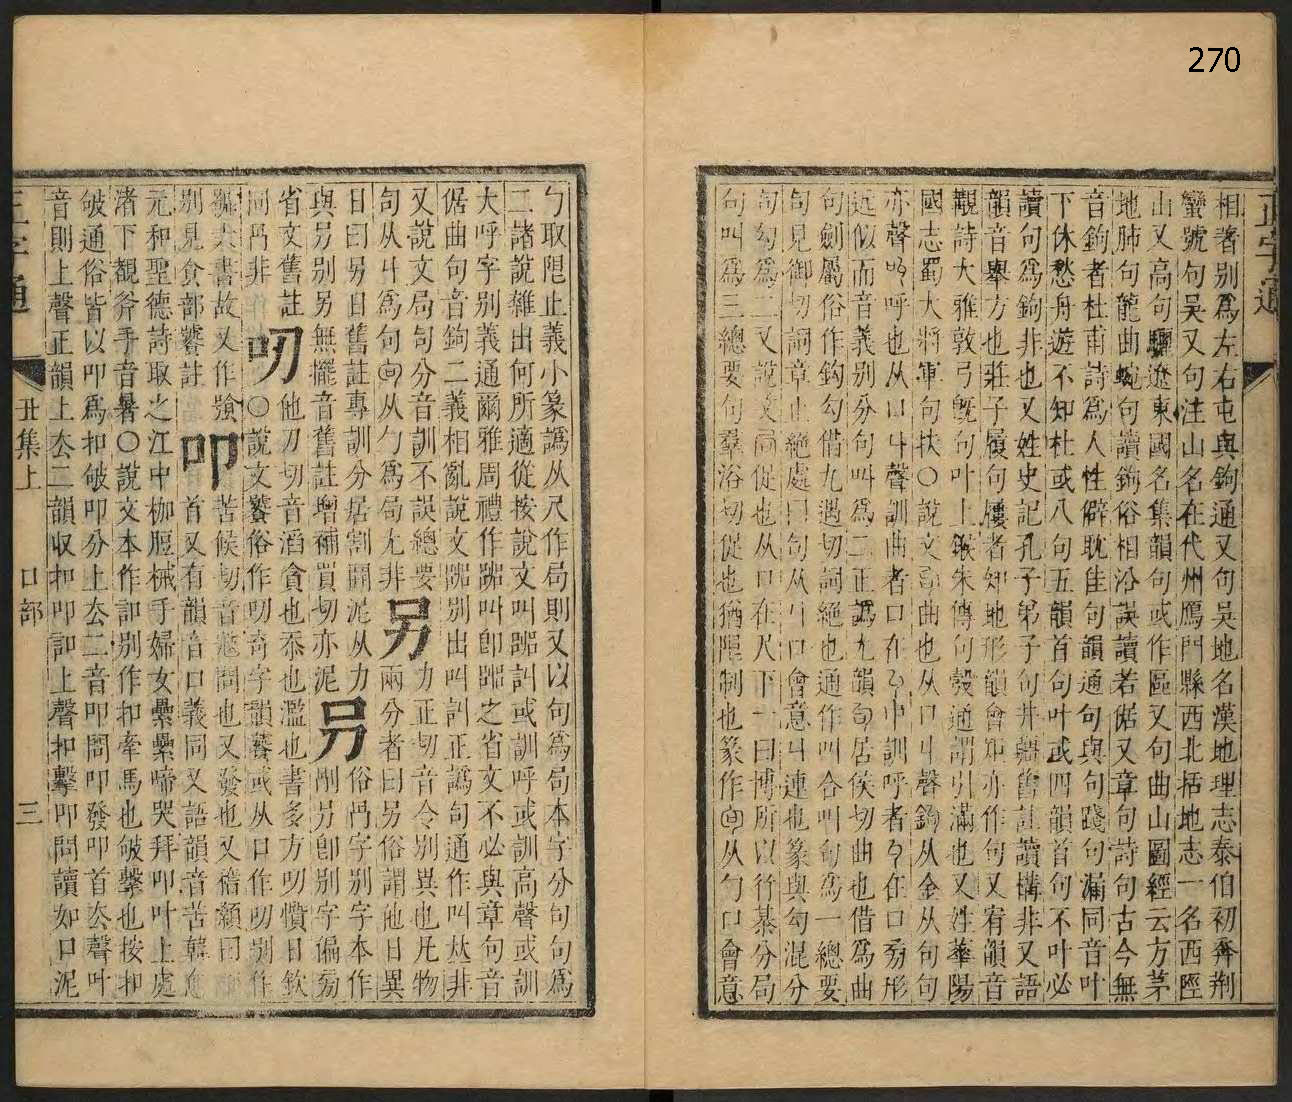 270
正字通
相著別爲左右屯與鉤通又句吳地名漢地理志泰伯初奔荆
蠻號句吳又句注山名在代州鴈門縣西北括地志一名西陘
山又高句驪遼東國名集韻句或作區又句曲山圖經云方茅
地肺句龍曲蜿句讀鉤俗相沿誤讀若倨又章句詩句古今無
音鉤者杜甫詩爲人性僻耽佳句韻通句與句踐句漏同音叶
下休愁舟遊不知杜或八句五韻首句叶或四韻首句不叶必
讀句爲鉤非也又姓史記孔子弟子句井疆舊註讀構非又語
韻音舉方也莊子履句屨者知地形韻會矩亦作句又宥韻音
觀詩大雅敦弓旣句叶上鍭朱傳句彀通謂引滿也又姓華陽
國志蜀大將軍句扶〇說文 曲也从口丩聲鉤从金从句句
亦聲 呼也从口丩聲訓曲者口在 中訓呼者 在口旁形
近似而音義別分句叫爲二正譌尤韻 居侯切曲也借爲曲
句劍屬俗作鈎勾借九遇切詞絕也通作叫合叫句爲一總要
句見御切詞章止絕處曰句从丩口會意丩連也篆與勾混分
句勾爲二又說文局促也从口在尺下一曰博所以行棊分局
句叫爲三總要句羣浴切促也猶限制也篆作 从勹口會意
勹取限止義小篆譌从尺作局則又以句爲局本字分句句爲
二諸說雜出何所適從按說文叫嘂訆或訓呼或訓高聲或訓
大呼字別義通爾雅周禮作嘂叫卽嘂之省文不必與章句音
倨曲句音鉤二義相亂說文嘂別出叫訆正譌句通作叫夶非
又說文局句分音訓不誤總要
句从丩爲句 从勹爲局尤非 另 力正切音令別異也凡物
兩分者曰另俗謂他日異
日曰另日舊註專訓分居割開泥从力
與另別另無擺音舊註增補買切亦泥 叧 俗冎字別字本作
剮叧卽別字偏旁
省文舊註
同冎非 叨 他刀切音滔貪也忝也濫也書多方叨懫日欽
〇說文饕俗作叨奇字韻饕或从口作叨別作
號六書故又作飸
別見食部饕註 叩 苦候切音蔲問也又發也又稽顙曰
首又有韻音口義同又語韻音苦韓愈
元和聖德詩取之江中枷脰械手婦女纍纍啼哭拜叩叶上處
渚下覩斧手音暑〇說文本作訆別作扣牽馬也敂擊也按扣
敂通俗皆以叩爲扣敂叩分上去二音叩問叩發叩首去聲叶
音則上聲正韻上去二韻収扣叩訆上聲扣擊叩問讀如口泥
正字通
丑集上
口部
三